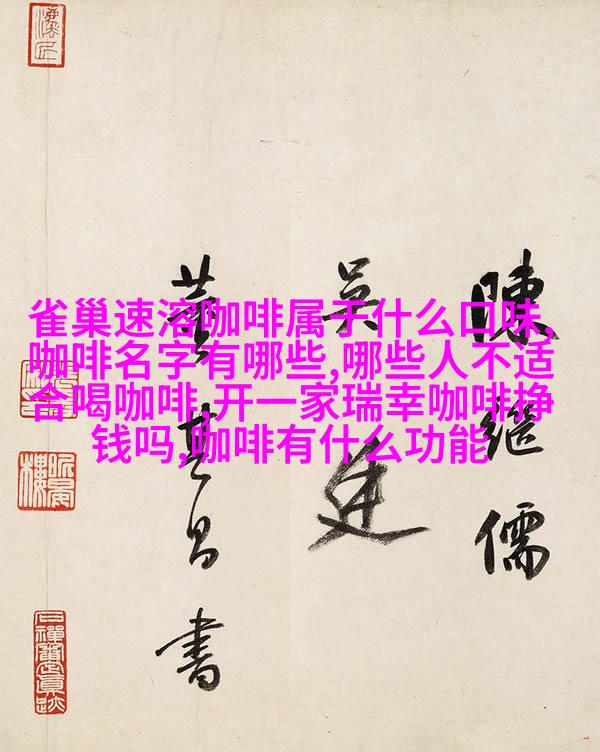 陳繼儒
吳廷
董其昌書
雀巢速溶咖啡属于什么口味,
咖啡名字有哪些,哪些人不适
合喝咖啡,开一家瑞幸咖啡挣
钱吗,咖啡有什么功能